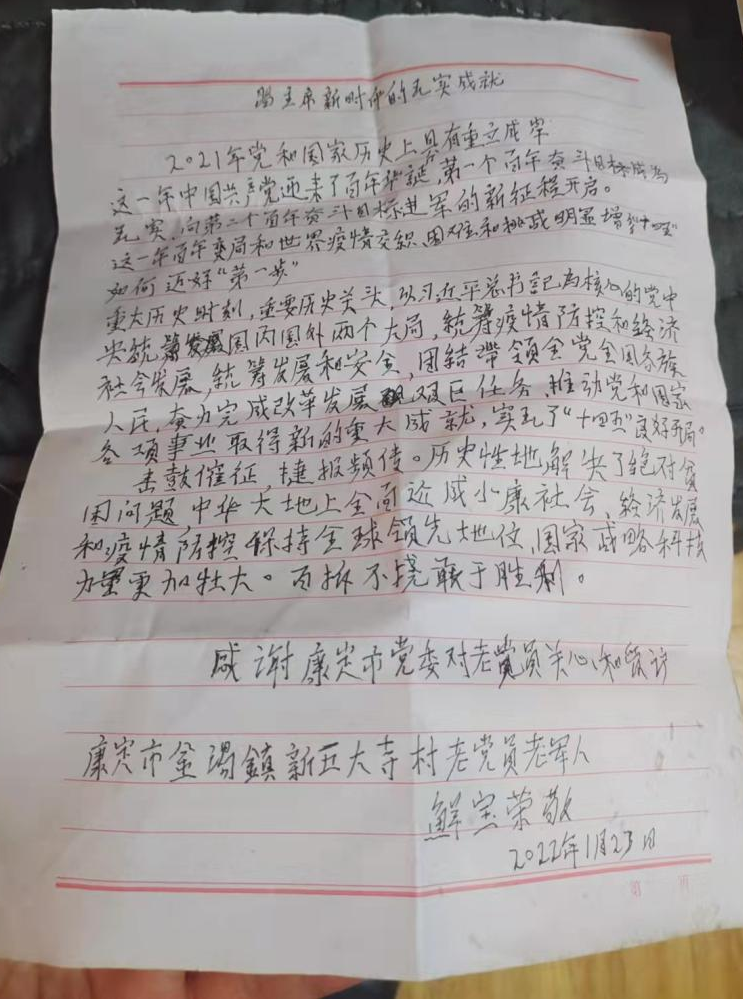 习主席新时代的现实成就
2021年党和国家历史上具有重立成岸
这一年中国共产党迎来了百年华誕,第一个百年奋斗目标成为
现实,向第二个百年奋斗目标进军的新征程开启。
这一年百年变局和世界疫情交织,困难和挑战明显增多"十四五"
如何迈好"第一步"
重大历史时刻,重要历史关头,以习近平总书記为核心的党中
央统筹国内国外两个大局,統筹疫情防控和经济
社会发展,統筹发展和安全,团结带领全党全国各族
人民,奋力完成改革发展艰巨任务,推动党和国家
各项事业取得新的重大成就,实现了"十四五"良好开局。
击鼓催征,捷报频传。历史性地解决了绝对贫
困问题,中华大地上全面达成小康社会,经济发展
和疫情防控保持全球领先地位,国家战略科技
力量更加壮大。百折不挠敢于胜利。
感谢康定市党委对老党员关心和
康定市金湯鎮新五大寺村老党员老军人
鲜宝荣敬
2022年1月23日
第 页